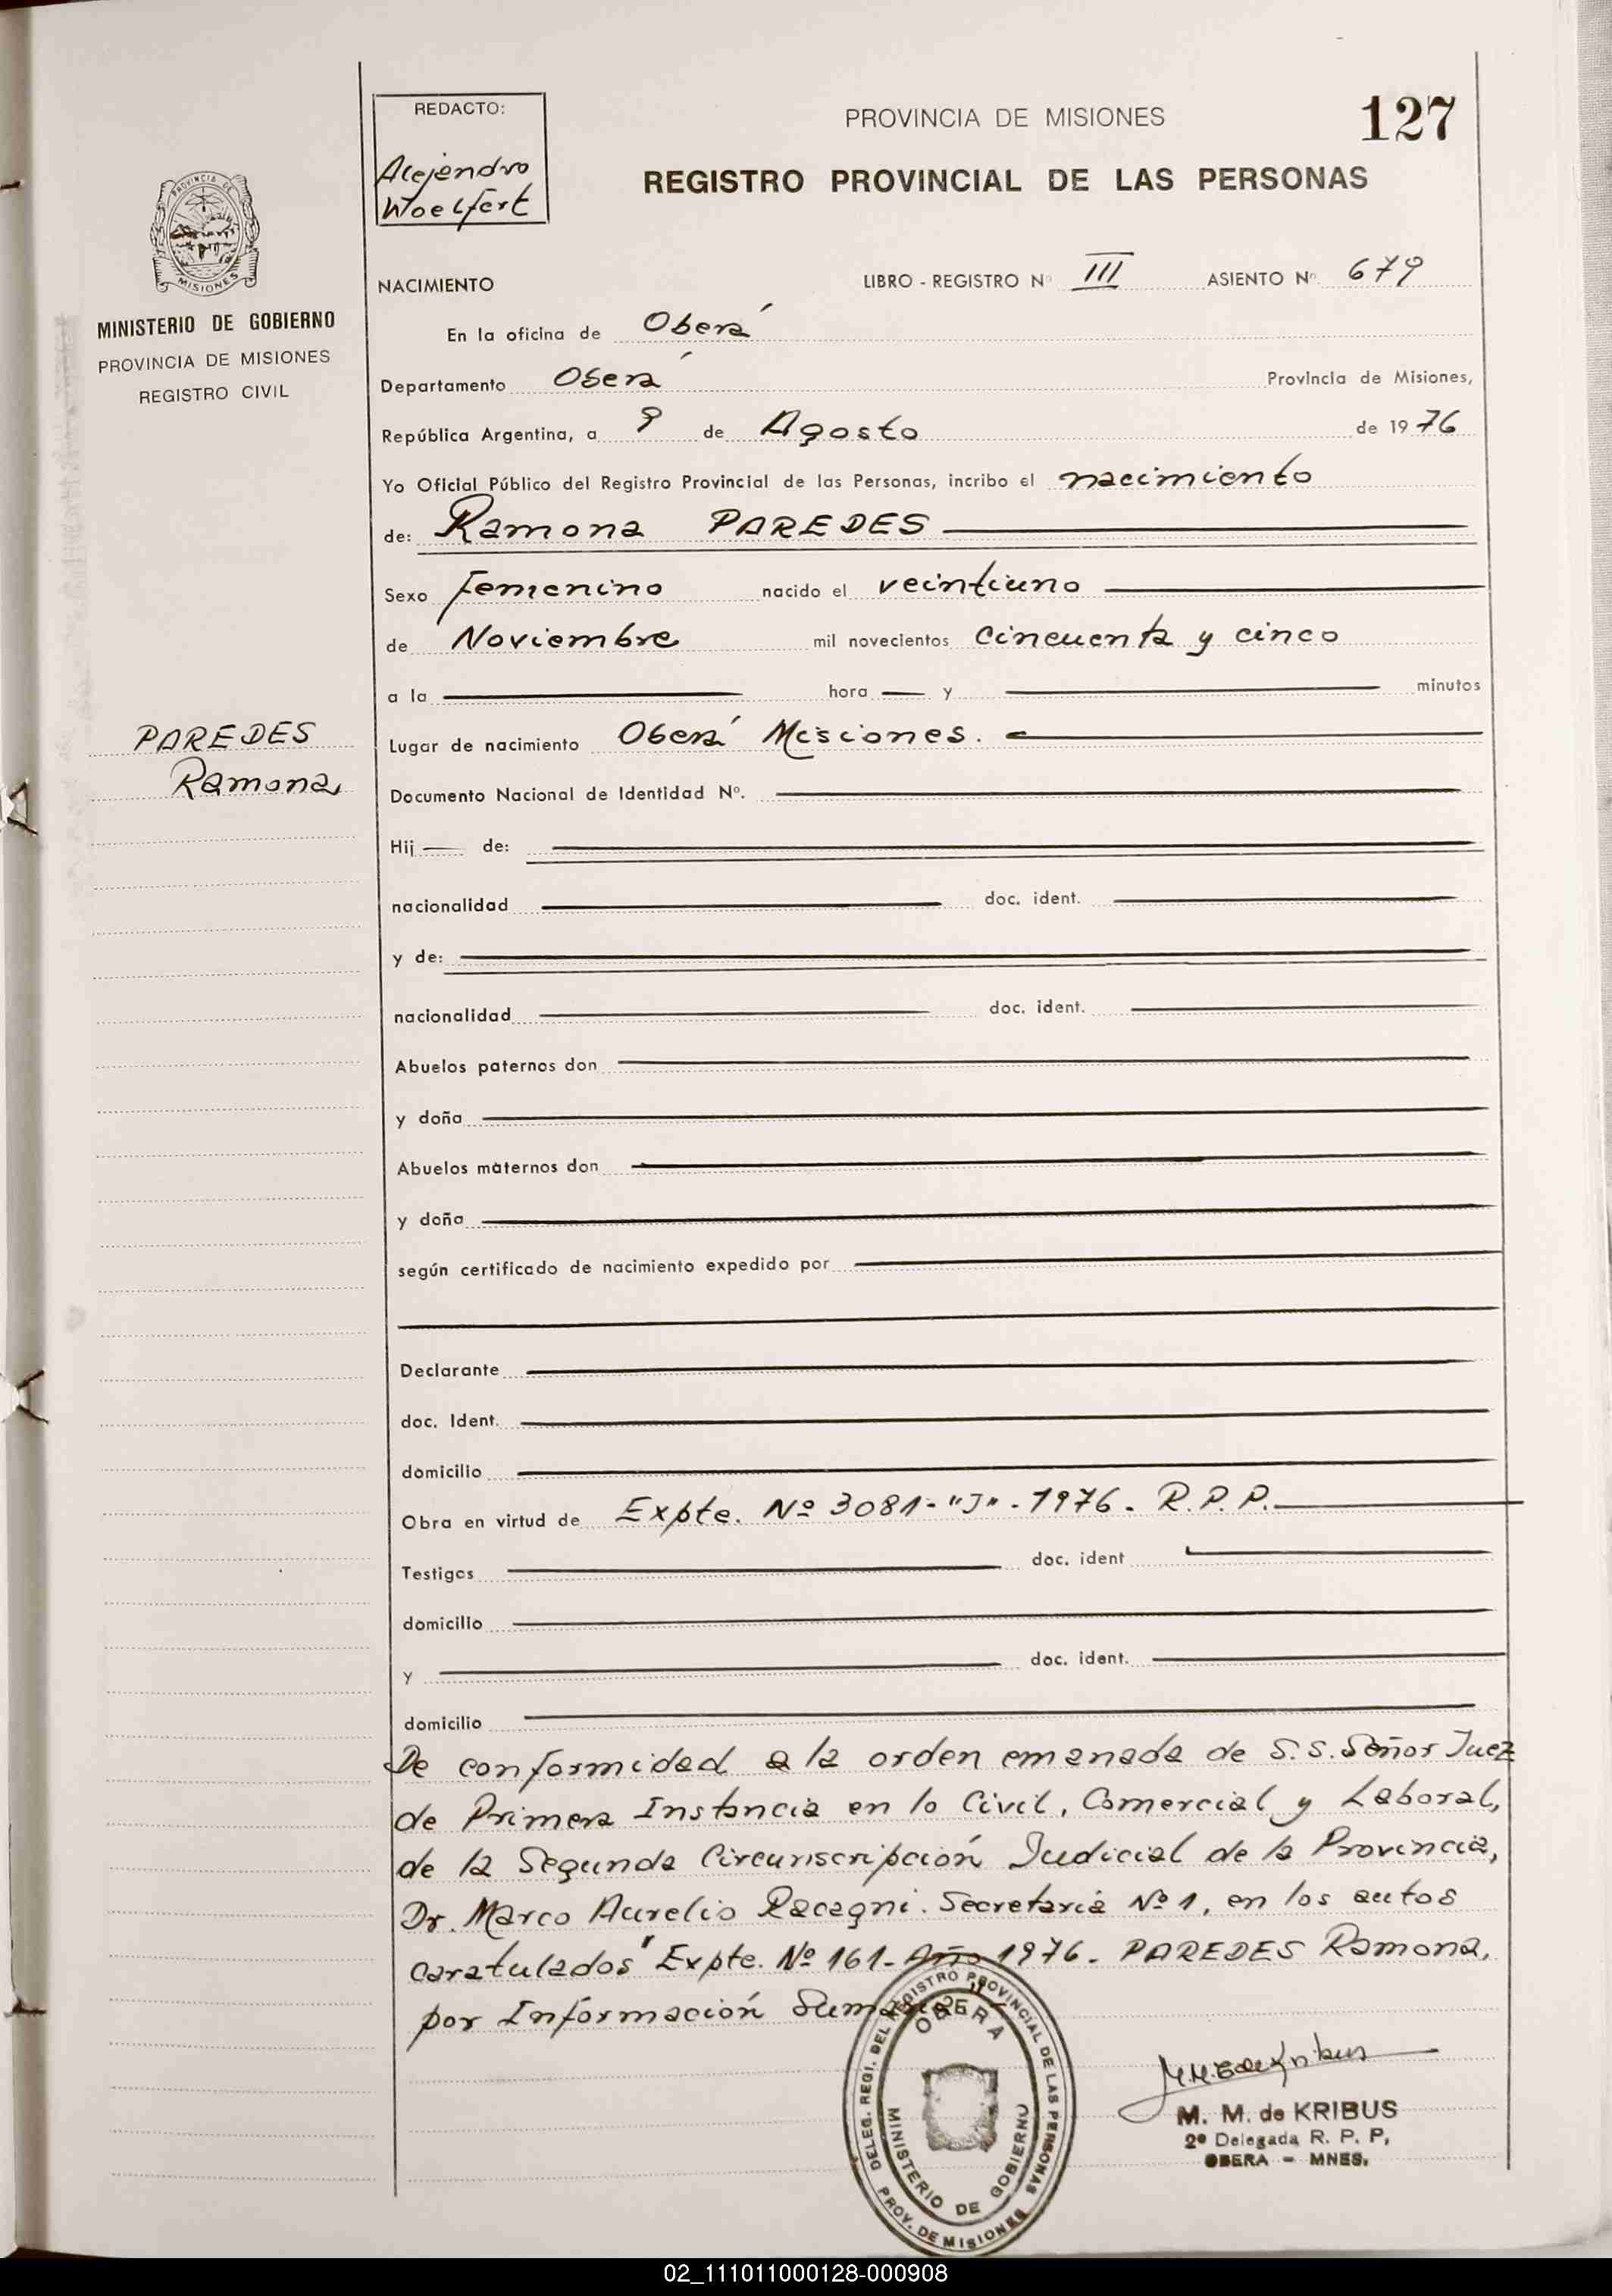 REDACTO:
Alejandro
Woelfert
PROVINCIA DE MISIONES
127
REGISTRO PROVINCIAL DE LAS PERSONAS
PROVINCIA DE
MISIONES
MINISTERIO DE GOBIERNO
PROVINCIA DE MISIONES
REGISTRO CIVIL
NACIMIENTO LIBRO - REGISTRO Nº III ASIENTO Nº 679
En la oficina de Oberá
Departamento Oberá Provincia de Misiones,
República Argentina, a 9 de Agosto de 1976
Yo Oficial Público del Registro Provincial de las Personas, incribo el nacimiento
de: Ramona PAREDES
Sexo Femenino nacido el veintiuno
de Noviembre mil novecientos cincuenta y cinco
a la hora y minutos
PAREDES
Ramona
Lugar de nacimiento Oberá Misiones.
Documento Nacional de Identidad Nº.
Hij de:
nacionalidad doc. ident.
y de:
nacionalidad doc. ident.
Abuelos paternos don
y doña
Abuelos maternos don
y doña
según certificado de nacimiento expedido por
Declarante
doc. Ident.
domicilio
Obra en virtud de Expte. Nº 3081-"J"-1976. R.P.P.
Testigos doc. ident
domicilio
y doc. ident.
domicilio
De conformidad a la orden emanada de S.S. Señor Juez
de Primera Instancia en lo Civil, Comercial y Laboral,
de la Segunda Circunscripción Judicial de la Provincia,
Dr. Marco Aurelio Racagni. Secretaría Nº 1, en los autos
caratulados "Expte. Nº 161-Año 1976. PAREDES Ramona,
por Información Sumaria"
DELEG. REGI. DEL REGISTRO PROVINCIAL DE LAS PERSONAS
OBERA
MINISTERIO DE GOBIERNO
PROV. DE MISIONES
M. M. de Kribus
M. M. de KRIBUS
2º Delegada R. P. P,
OBERA - MNES.
02_111011000128-000908